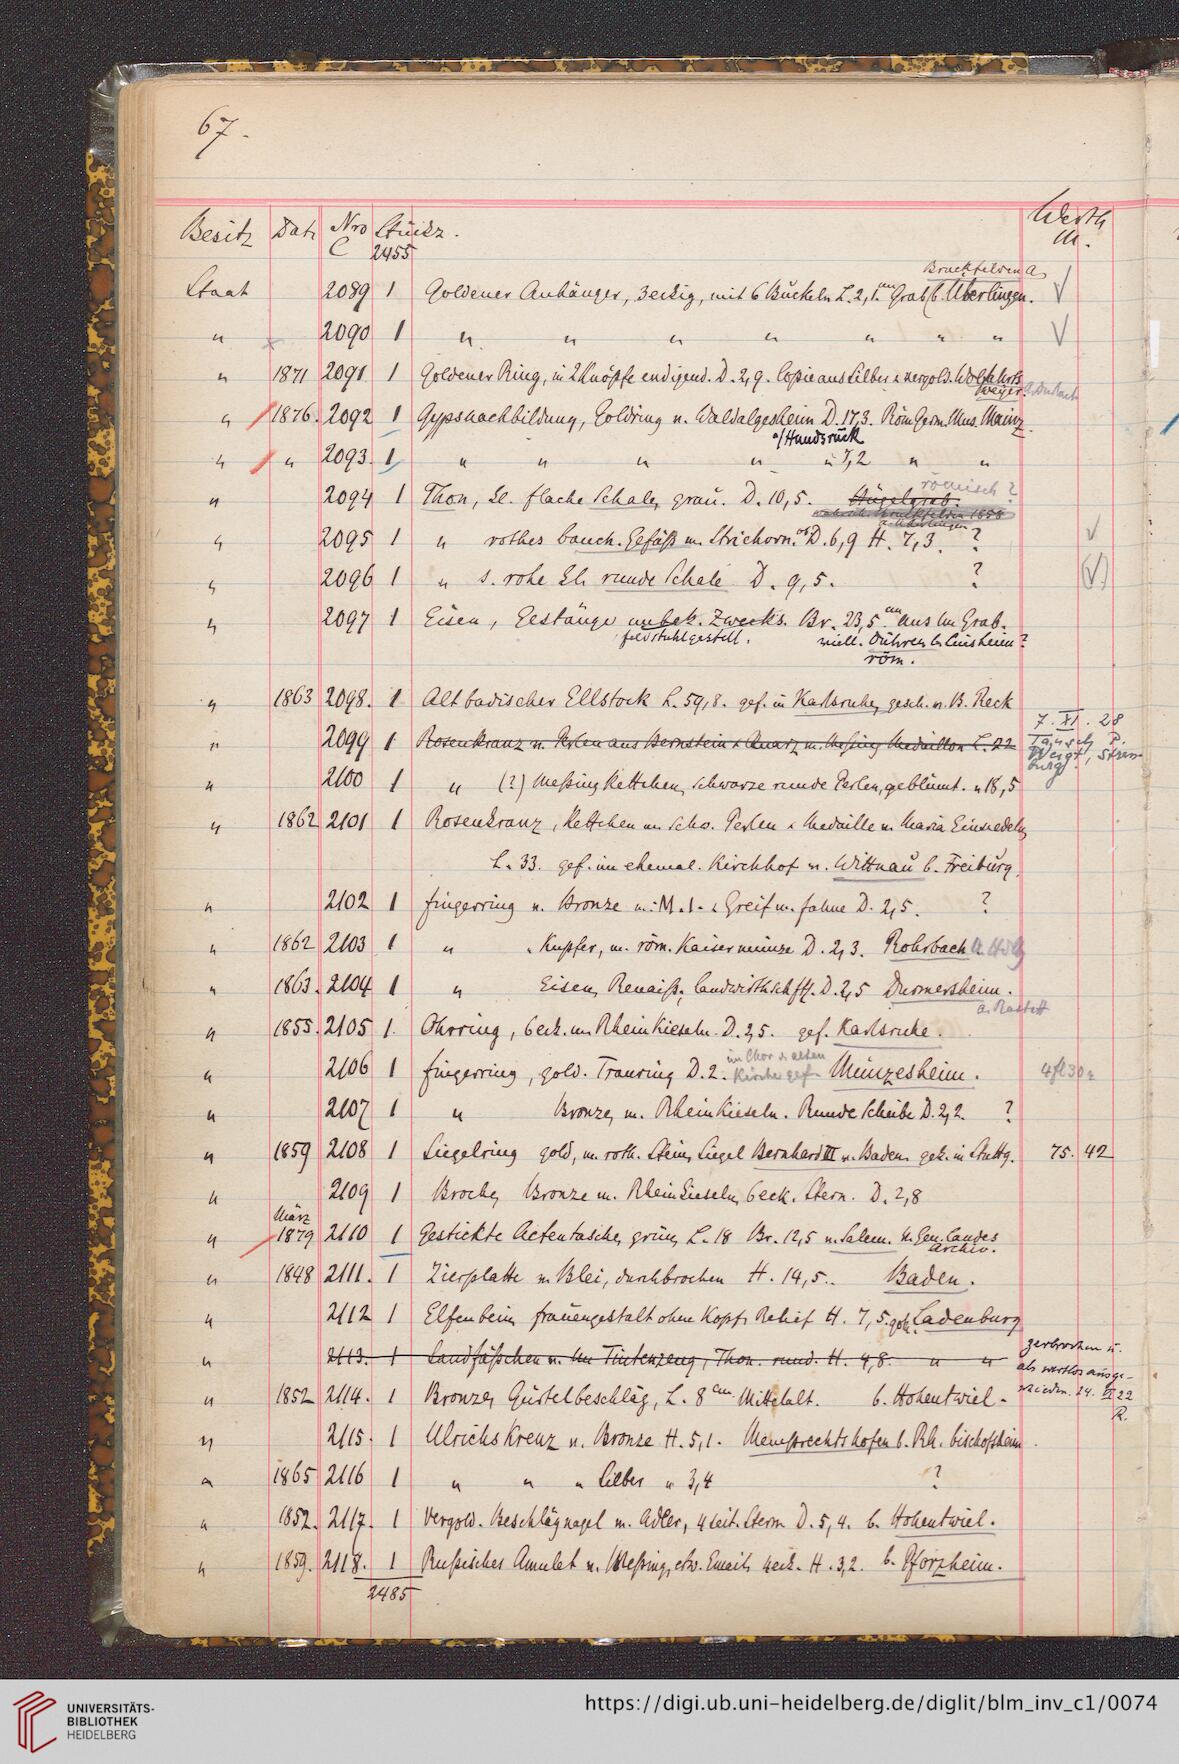 67.
Besitz Dat. Nro Stückz. Werth
C 2455 M.
Bruckfelden a.
Staat 2089 1 Goldener Anhänger, 3eckig, mit 6 Buckeln L. 2,1 cm Grab b. Überlingen.
" 2090 1 " " " " " " "
" 1871 2091 1 Goldener Ring, in 2 Knöpfe endigend. D. 2,9. Copie aus Silber u. vergold.
weyer.
" 1876. 2092 1 Gypsnachbildung, Goldring v. Waldalgesheim D. 17,3. Röm. Germ. Mus. Mainz.
a/Hundsrück
" " 2093. 1 " " " " " 7,2 " "
römisch?
" 2094 1 Thon, kl. flache Schale, grau. D. 10,5. Hügelgrab.
Bruckfelden 1858
a. Überlingen
" 2095 1 " rothes bauch. Gefäß m. Strichorn. ob D. 6,9 H. 7,3. ?
" 2096 1 " s. rohe kl. runde Schale D. 9,5. ?
" 2097 1 Eisen, Gestänge unbek. Zwecks. Br. 23,5 cm aus Grab.
feldstuhlgestell. viell. Dühren b. Sinsheim?
röm.
" 1863 2098. 1 Altbadischer Ellstock L. 59,8. gef. in Karlsruhe, gesch. v. B. Reck
7. XI. 28
" 2099 1 Rosenkranz v. Perlen aus Bernstein u. Quarz m. Meßing Medaillon L. 22
Tausch P.
Weigt,
burg.
" 2100 1 " (?) Meßingkettchen, schwarze runde Perlen, geblümt. " 18,5
" 1862 2101 1 Rosenkranz, Kettchen m. schw. Perlen u. Medaille v. Maria Einsiedeln,
L. 33. gef. im ehemal. Kirchhof v. Wittnau b. Freiburg.
" 2102 1 Fingerring v. Bronze m. M. I. u. Greif m. Fahne D. 2,5. ?
" 1862 2103 1 " " Kupfer, m. röm. Kaisermünze D. 2,3. Rohrbach
" 1863. 2104 1 " Eisen, Renaiß., landwirthschftl. D. 2,5 Durmersheim.
a. Rastatt
" 1855. 2105 1. Ohrring, 6eck. m. Rheinkieseln. D. 2,5. gef. Karlsruhe.
im Chor d. alten
" 2106 1 Fingerring, gold. Trauring D. 2. Kirche gef. Münzesheim. 4 fl 30
" 2107 1 " Bronze, m. Rheinkieseln. Runde Scheibe D. 2,2. ?
" 1859 2108 1 Siegelring gold, m. roth. Stein, Siegel Bernhard III v. Baden. gek. in Stuttg. 75. 42
" 2109 1 Broche, Bronze m. Rheinkieseln, 6eck. Stern. D. 2,8
März
" 1879 2110 1 Gestickte Actentasche, grün, L. 18 Br. 12,5 v. Salem. Gen. Landes
archiv.
" 1848 2111. 1 Zierplatte v. Blei, durchbrochen H. 14,5. Baden.
" 2112 1 Elfenbein, Frauengestalt ohne Kopf, Relief H. 7,5. gek. Ladenburg
zerbrochen u.
" 2113. 1 Sandfäßchen v. Tintenzeug, Thon. rund. H. 4,8. " "
als wertlos ausge-
schieden. 24. II 22
R.
" 1852 2114. 1 Bronze, Gürtelbeschläg, L. 8 cm Mittelalt. b. Hohentwiel.
" 2115. 1 Ulrichskreuz v. Bronze H. 5,1. Memprechtshofen b. Rh. bischofsheim.
" 1865 2116 1 " " " Silber " 3,4 ?
" 1852. 2117. 1 Vergold. Beschlägnagel m. Adler, 4seit. Stern D. 5,4. b. Hohentwiel.
" 1859. 2118. 1 Rußisches Amulet v. Meßing, etw. Email, 4eck. H. 3,2. b. Pforzheim.
2485
UNIVERSITÄTS-
BIBLIOTHEK
HEIDELBERG
https://digi.ub.uni-heidelberg.de/diglit/blm_inv_c1/0074